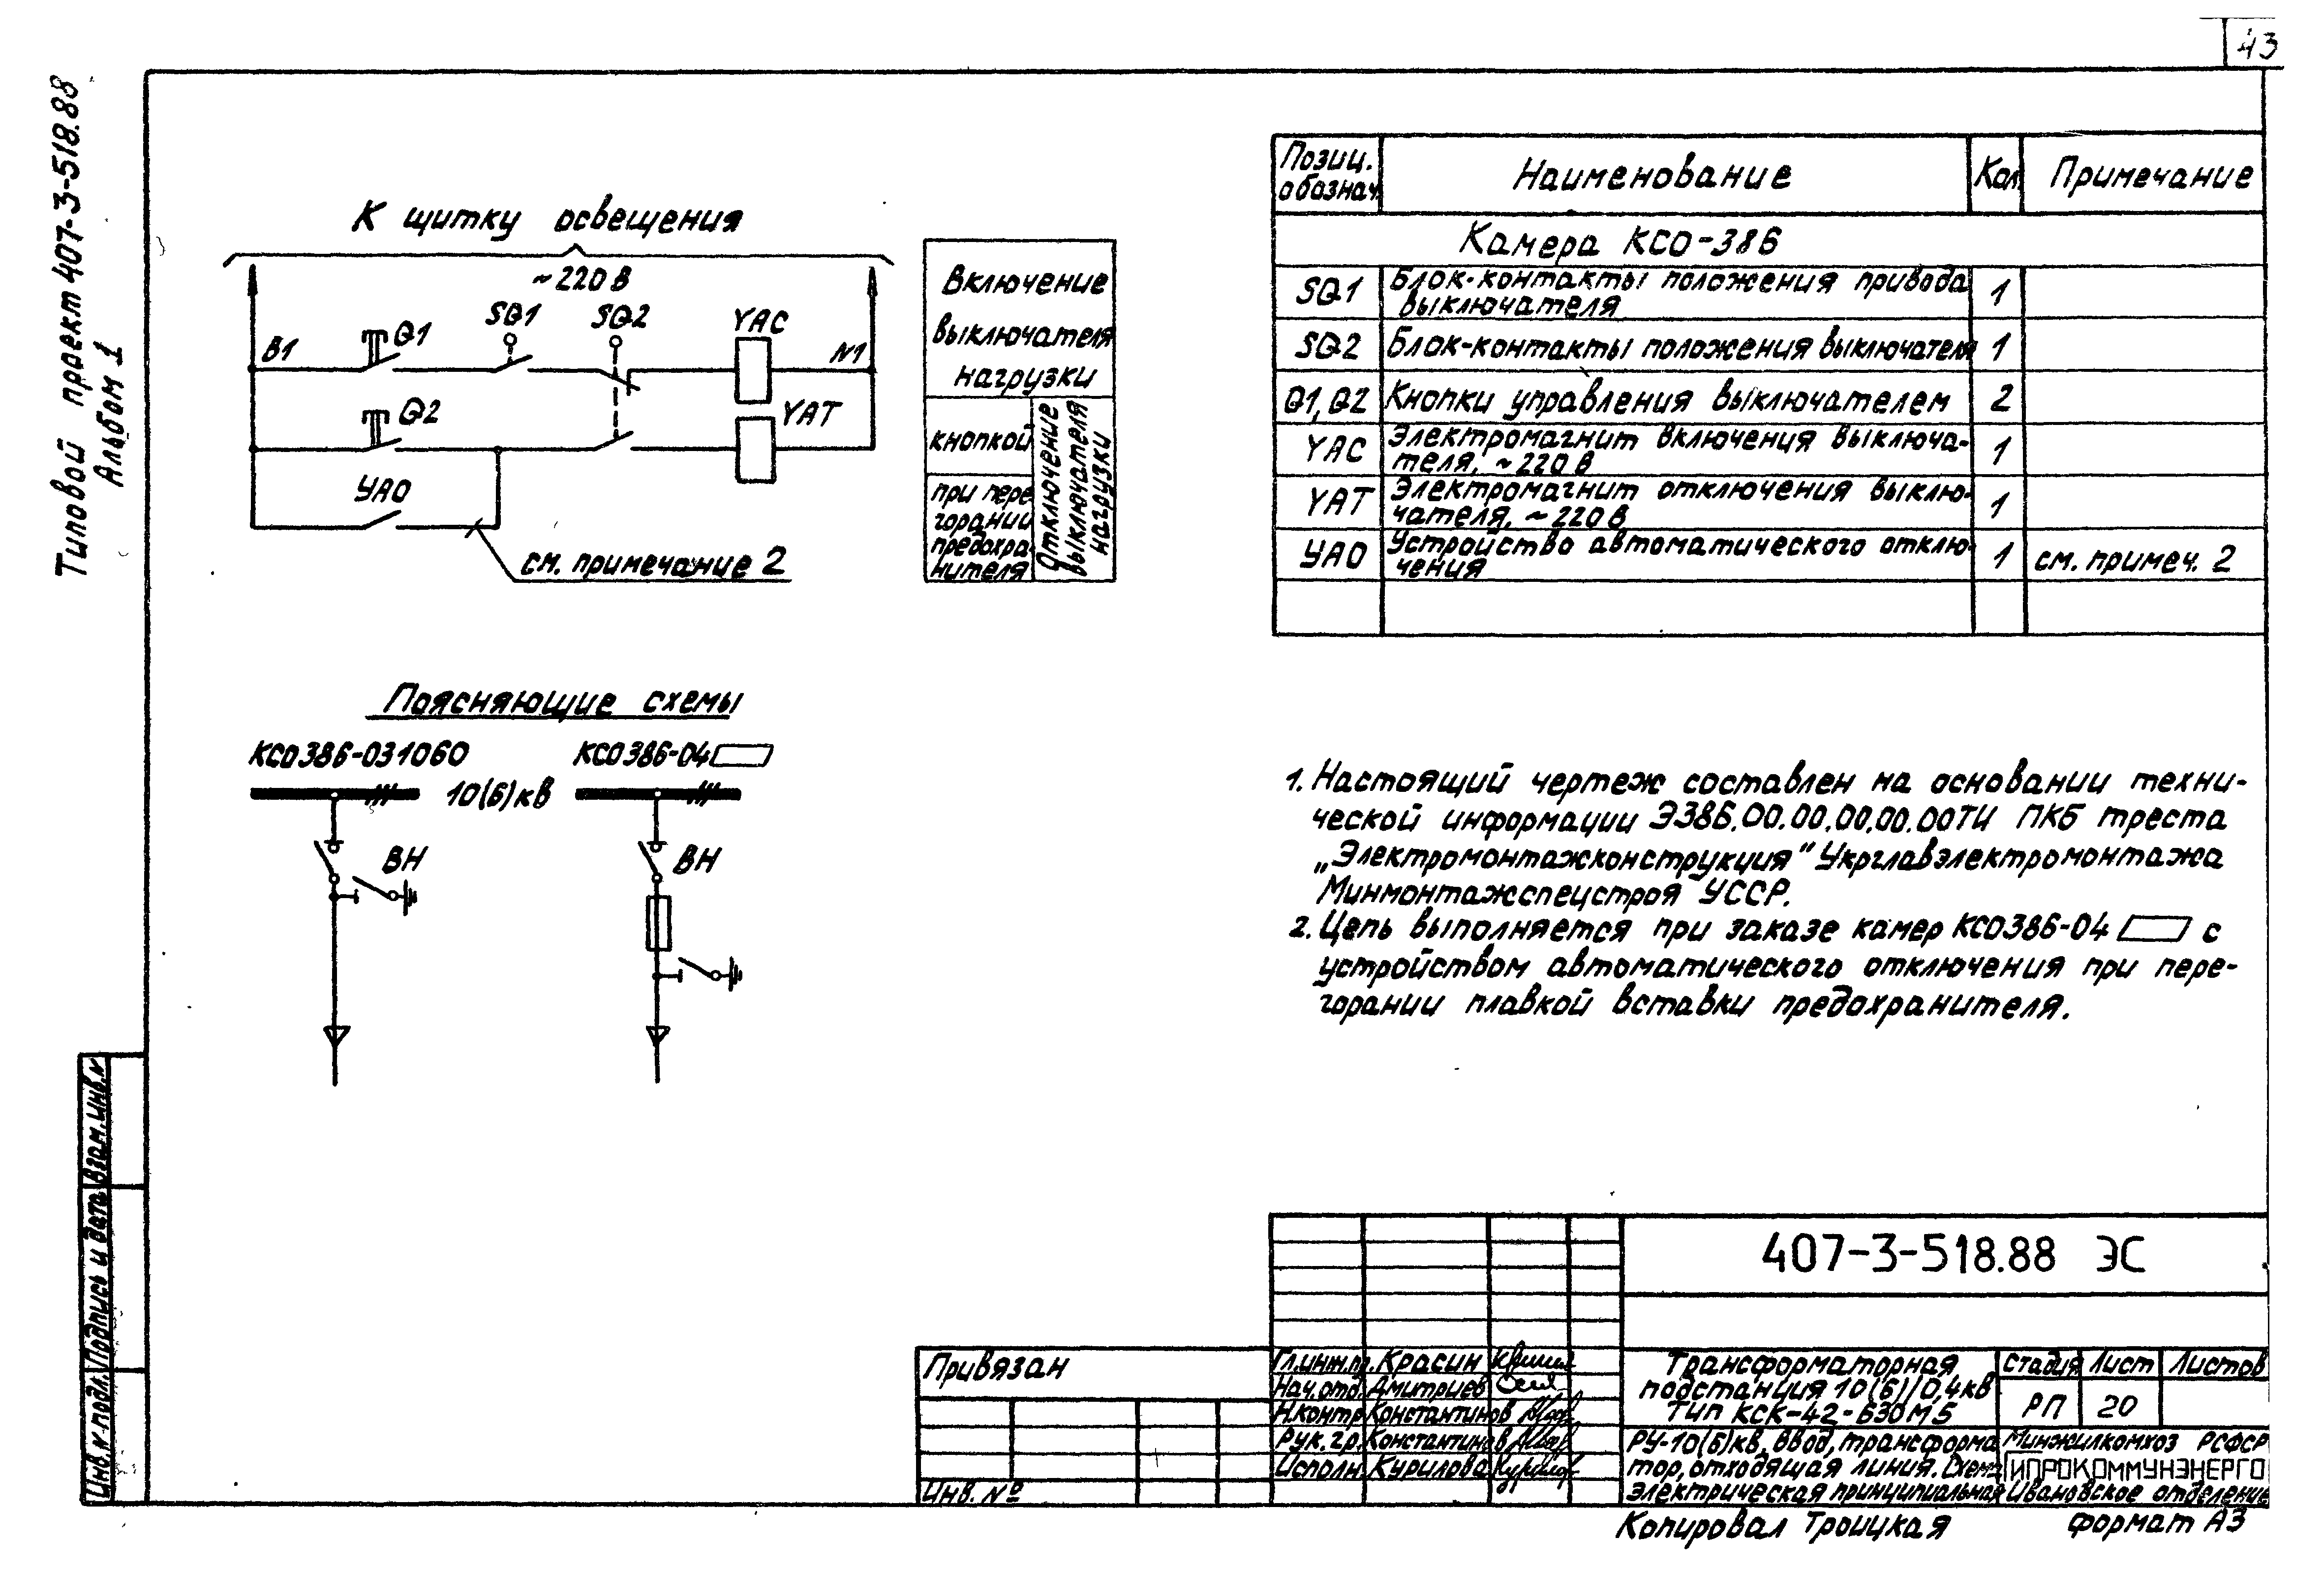 43
Типовой проект 407-3-518.88
Альбом 1
К щитку освещения
~220 В
В1
Q1
SQ1
SQ2
YAC
N1
Q2
YAT
УАО
см. примечание 2
Включение
выключателя
нагрузки
кнопкой
при пере
горании
предохра-
нителя
Отключение
выключателя
нагрузки
Позиц.
обознач.
Наименование
Кол.
Примечание
Камера КСО-386
SQ1
Блок-контакты положения привода
выключателя
1
SQ2
Блок-контакты положения выключателя
1
Q1, Q2
Кнопки управления выключателем
2
YAC
Электромагнит включения выключа-
теля, ~220 В
1
YAT
Электромагнит отключения выклю-
чателя, ~220 В
1
УАО
Устройство автоматического отклю-
чения
1
см. примеч. 2
Поясняющие схемы
КСО386-031060
КСО386-04
10(6)кВ
ВН
ВН
1. Настоящий чертеж составлен на основании техни-
ческой информации Э386.00.00.00.00.00ТИ ПКБ треста
„Электромонтажконструкция" Укрглавэлектромонтажа
Минмонтажспецстроя УССР.
2. Цепь выполняется при заказе камер КСО386-04 с
устройством автоматического отключения при пере-
горании плавкой вставки предохранителя.
Инв.№ подл.
Подпись и дата
Взам.инв.№
407-3-518.88 ЭС
Привязан
Инв. №
Гл.инж.пр. Красин
Нач.отд. Дмитриев
Н.контр Константинов
Рук.гр. Константинов
Исполн Курилова
Трансформаторная
подстанция 10(6)/0,4кв
тип КСК-42-630М5
Стадия
Лист
Листов
РП
20
РУ-10(6)кв, ввод, трансформа
тор, отходящая линия. Схема
электрическая принципиальная
Минжилкомхоз РСФСР
ГИПРОКОММУНЭНЕРГО
Ивановское отделение
Копировал Троицкая
формат А3